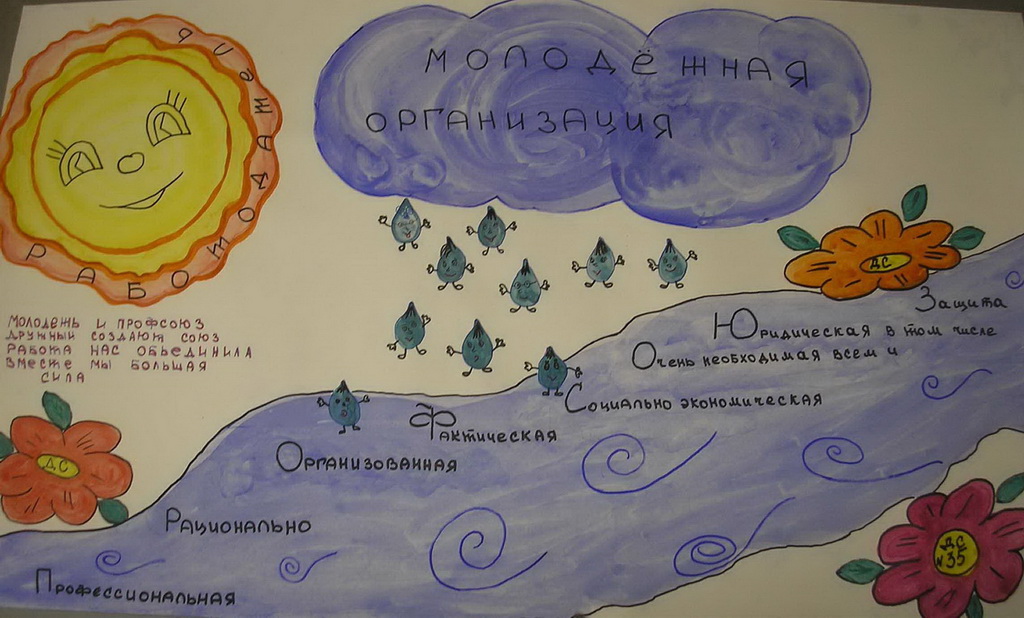 РАБОТОДАТЕЛИ
МОЛОДЁЖНАЯ
ОРГАНИЗАЦИЯ
МОЛОДЕЖЬ И ПРОФСОЮЗ
ДРУЖНЫЙ СОЗДАЮТ СОЮЗ
РАБОТА НАС ОБЬЕДИНИЛА
ВМЕСТЕ МЫ БОЛЬШАЯ
СИЛА
ДС
Защита
Юридическая в том числе
Очень необходимая всем и
Социально экономическая
Фактическая
Организованная
Рационально
Профессиональная
ДС
ДС
№35